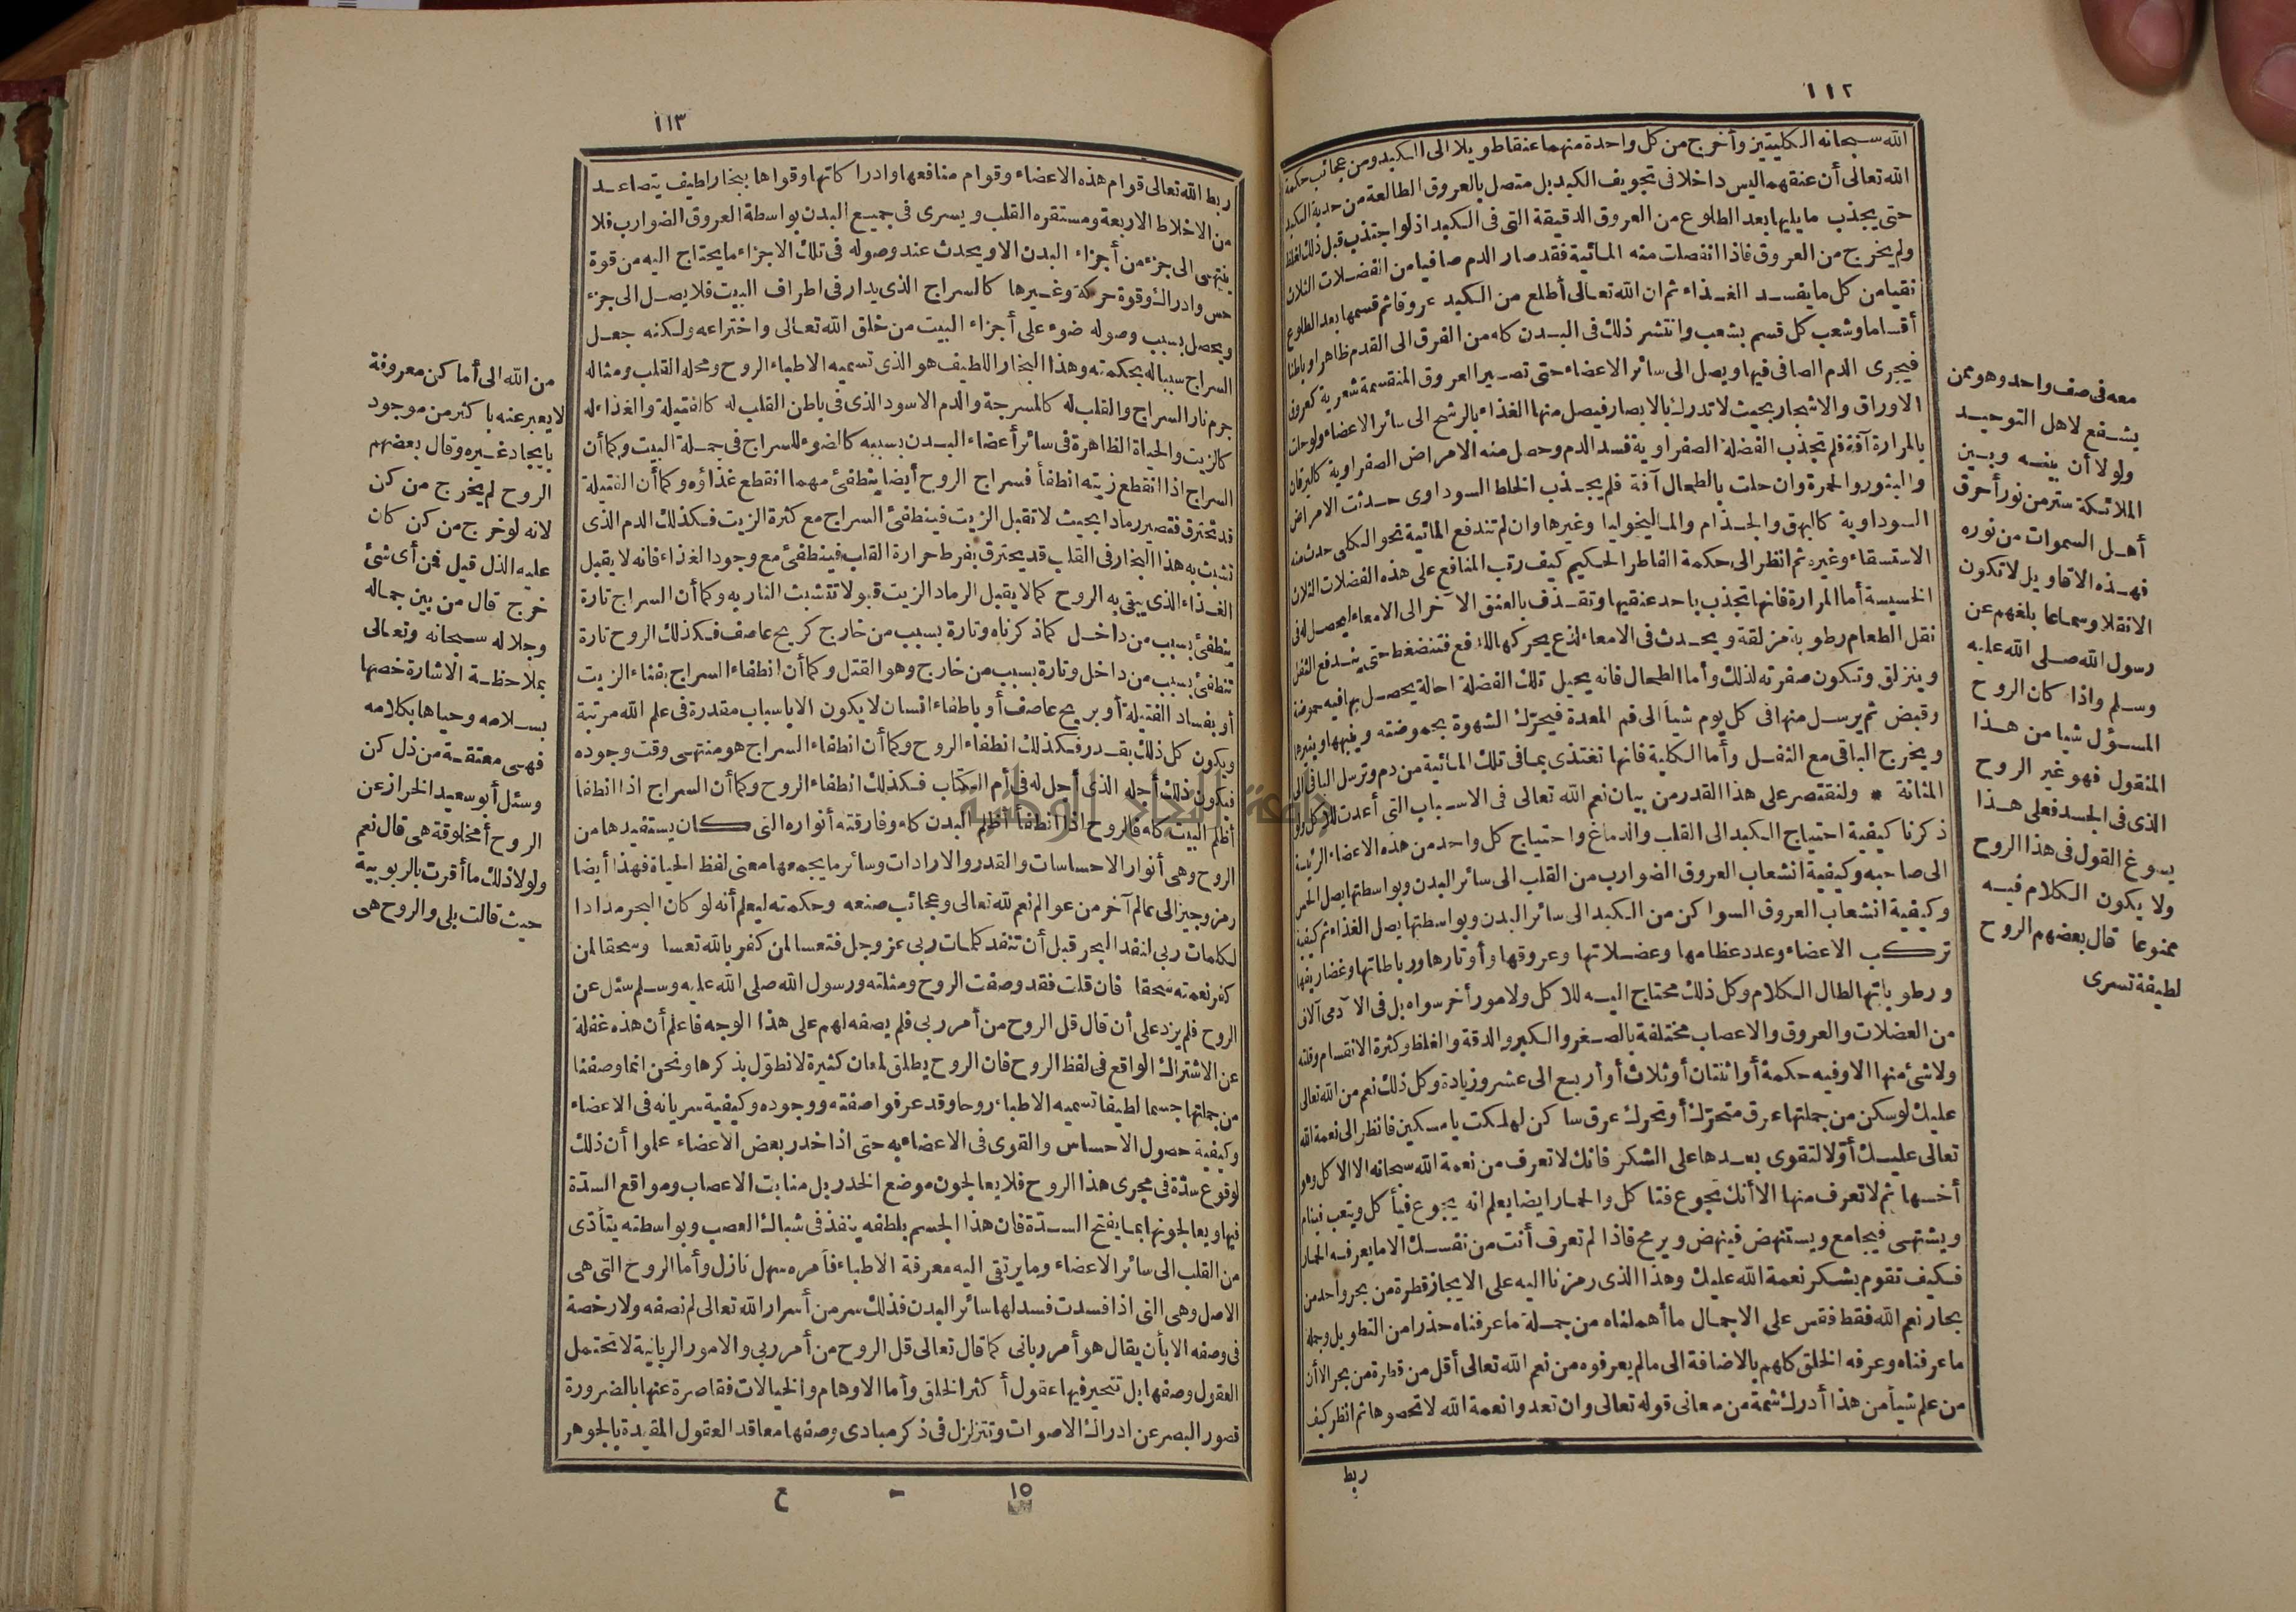 ١١٢
الله سبحانه الكليتين وأخرج من كل واحدة منهما عنقا طويلا الى الكبد ومن عجائب حكمة
الله تعالى أن عنقهما ليس داخلا فى تجويف الكبد بل متصل بالعروق الطالعة من حدبة الكبد
حتى يجذب مايليها بعد الطلوع من العروق الدقيقة التى فى الكبد اذ لو اجتذب قبل ذلك لغلظ
ولم يخرج من العروق فاذا انفصلت منه المائية فقد صار الدم صافيا من الفضلات الثلاث
نقيا من كل ما يفسد الغذاء ثم ان الله تعالى أطلع من الكبد عروقا ثم قسمها بعد الطلوع
أقساما وشعب كل قسم بشعب وانتشر ذلك فى البدن كله من الفرق الى القدم ظاهرا وباطنا
فيجرى الدم الصافى فيها ويصل الى سائر الاعضاء حتى تصير العروق المنقسمة شعرية كعروق
الاوراق والاشجار بحيث لاتدرك بالابصار فيصل منها الغذاء بالرشح الى سائر الاعضاء ولوحلت
بالمرارة آفة فلم تجذب الفضلة الصفراوية فسد الدم وحصل منه الامراض الصفراوية كاليرقان
والبثور والحمرة وان حلت بالطحال آفة فلم يجذب الخلط السوداوى حدثت الامراض
السوداوية كالبهق والجذام والماليخوليا وغيرها وان لم تندفع المائية نحو الكلى حدث منه
الاستسقاء وغيره ثم انظر الى حكمة الفاطر الحكيم كيف رتب المنافع على هذه الفضلات الثلاث
الخسيسة أما المرارة فانها تجذب باحد عنقيها وتقذف بالعنق الآخر الى الامعاء ليحصل له فى
ثفل الطعام رطوبة مزلقة ويحدث فى الامعاء لذع يحركها للدفع فتنضغط حتى يندفع الثفل
وينزلق وتكون صفرته لذلك وأما الطحال فانه يحيل تلك الفضلة احالة يحصل بها فيه حموضة
وقبض ثم يرسل منها فى كل يوم شيأ الى فم المعدة فيحرك الشهوة بحموضته وينبهها ويثيرها
ويخرج الباقى مع الثفل وأما الكلية فانها تغتذى بما فى تلك المائية من دم وترسل الباقى الى
المثانة * ولنقتصر على هذا القدر من بيان نعم الله تعالى فى الاسباب التى أعدت للاكل ولو
ذكرنا كيفية احتياج الكبد الى القلب والدماغ واحتياج كل واحد من هذه الاعضاء الرئيسة
الى صاحبه وكيفية انشعاب العروق الضوارب من القلب الى سائر البدن وبواسطتها يصل الحس
وكيفية انشعاب العروق السواكن من الكبد الى سائر البدن وبواسطتها يصل الغذاء ثم كيفية
تركب الاعضاء وعدد عظامها وعضلاتها وعروقها وأوتارها ورباطاتها وغضاريفها
ورطوباتها لطال الكلام وكل ذلك محتاج اليه للاكل ولامور أخر سواه بل فى الآدمى آلاف
من العضلات والعروق والاعصاب مختلفة بالصغر والكبر والدقة والغلظ وكثرة الانقسام وقلته
ولاشئ منها الاوفيه حكمة أواثنتان أوثلاث أوأربع الى عشر وزيادة وكل ذلك نعم من الله تعالى
عليك لوسكن من جملتها عرق متحرك أوتحرك عرق ساكن لهلكت يامسكين فانظر الى نعمة الله
تعالى عليك أولا لتقوى بعدها على الشكر فانك لاتعرف من نعمة الله سبحانه الا الاكل وهو
أخسها ثم لاتعرف منها الا أنك تجوع فتأكل والحمار ايضا يعلم انه يجوع فيأكل ويتعب فينام
ويشتهى فيجامع ويستنهض فينهض ويرمح فاذا لم تعرف أنت من نفسك الا مايعرفه الحمار
فكيف تقوم بشكر نعمة الله عليك وهذا الذى رمزنا اليه على الايجاز قطرة من بحر واحد من
بحار نعم الله فقط فقس على الاجمال ما أهملناه من جملة ماعرفناه حذرا من التطويل وجملة
ماعرفناه وعرفه الخلق كلهم بالاضافة الى مالم يعرفوه من نعم الله تعالى أقل من قطرة من بحر الاأن
من علم شيأ من هذا أدرك شمة من معانى قوله تعالى وان تعدوا نعمة الله لاتحصوها ثم انظر كيف
ربط
معه فى صف واحد وهو ممن
يشفع لاهل التوحيد
ولولا أن بينه وبين
الملائكة ستر من نور أحرق
أهل السموات من نوره
فهذه الاقاويل لاتكون
الانقلا وسماعا بلغهم عن
رسول الله صلى الله عليه
وسلم واذا كان الروح
المسؤل شيا من هذا
المنقول فهو غير الروح
الذى فى الجسد فعلى هذا
يسوغ القول فى هذا الروح
ولا يكون الكلام فيه
ممنوعا قال بعضهم الروح
لطيفة تسرى
١١٣
ربط الله تعالى قوام هذه الاعضاء وقوام منافعها وادراكاتها وقواها ببخار لطيف يتصاعد
من الاخلاط الاربعة ومستقره القلب ويسرى فى جميع البدن بواسطة العروق الضوارب فلا
ينتهى الى جزء من أجزاء البدن الا ويحدث عند وصوله فى تلك الاجزاء ما يحتاج اليه من قوة
حس وادراك وقوة حركة وغيرها كالسراج الذى يدار فى اطراف البيت فلا يصل الى جزء
ويحصل بسبب وصوله ضوء على أجزاء البيت من خلق الله تعالى واختراعه ولكنه جعل
السراج سببا له بحكمته وهذا البخار اللطيف هو الذى تسميه الاطباء الروح ومحله القلب ومثاله
جرم نار السراج والقلب له كالمسرجة والدم الاسود الذى فى باطن القلب له كالفتيلة والغذاء له
كالزيت والحياة الظاهرة فى سائر أعضاء البدن بسببه كالضوء للسراج فى جملة البيت وكما أن
السراج اذا انقطع زيته انطفأ فسراج الروح أيضا ينطفئ مهما انقطع غذاؤه وكما أن الفتيلة
قد تحترق فتصير رمادا بحيث لاتقبل الزيت فينطفئ السراج مع كثرة الزيت فكذلك الدم الذى
تشبث به هذا البخار فى القلب قد يحترق بفرط حرارة القلب فينطفئ مع وجود الغذاء فانه لايقبل
الغذاء الذى يبقى به الروح كما لايقبل الرماد الزيت قبولا تتشبث النار به وكما أن السراج تارة
ينطفئ بسبب من داخل كما ذكرناه وتارة بسبب من خارج كريح عاصف فكذلك الروح تارة
تنطفئ بسبب من داخل وتارة بسبب من خارج وهو القتل وكما أن انطفاء السراج بفناء الزيت
أو بفساد الفتيلة أو بريح عاصف أو باطفاء انسان لايكون الا باسباب مقدرة فى علم الله مرتبة
ويكون كل ذلك بقدر فكذلك انطفاء الروح وكما أن انطفاء السراج هو منتهى وقت وجوده
فيكون ذلك أجله الذى أجل له فى أم الكتاب فكذلك انطفاء الروح وكما أن السراج اذا انطفأ
أظلم البيت كله فالروح اذا انطفأ أظلم البدن كله وفارقته أنواره التى كان يستفيدها من
الروح وهى أنوار الاحساسات والقدر والارادات وسائر مايجمعها معنى لفظ الحياة فهذا أيضا
رمز وجيز الى عالم آخر من عوالم نعم لله تعالى وعجائب صنعه وحكمته ليعلم أنه لو كان البحر مدادا
لكلمات ربى لنفد البحر قبل أن تنفد كلمات ربى عز وجل فتعسا لمن كفر بالله تعسا وسحقا لمن
كفر نعمته سحقا فان قلت فقد وصفت الروح ومثلته ورسول الله صلى الله عليه وسلم سئل عن
الروح فلم يزد على أن قال قل الروح من أمر ربى فلم يصفه لهم على هذا الوجه فاعلم أن هذه غفلة
عن الاشتراك الواقع فى لفظ الروح فان الروح يطلق لمعان كثيرة لانطول بذكرها ونحن انما وصفنا
من جملتها جسما لطيفا تسميه الاطباء روحا وقد عرفوا صفته ووجوده وكيفية سريانه فى الاعضاء
وكيفية حصول الاحساس والقوى فى الاعضاء به حتى اذا خدر بعض الاعضاء علموا أن ذلك
لوقوع سدة فى مجرى هذا الروح فلا يعالجون موضع الخدر بل منابت الاعصاب ومواقع السدة
فيها ويعالجونها بما يفتح السدة فان هذا الجسم بلطفه ينفذ فى شباك العصب وبواسطته يتأدى
من القلب الى سائر الاعضاء وما يرتقى اليه معرفة الاطباء فأمره سهل نازل وأما الروح التى هى
الاصل وهى التى اذا فسدت فسد لها سائر البدن فذلك سر من أسرار الله تعالى لم نصفه ولا رخصة
فى وصفه الا بأن يقال هو أمر ربانى كما قال تعالى قل الروح من أمر ربى والامور الربانية لا تحتمل
العقول وصفها بل تتحير فيها عقول أكثر الخلق وأما الاوهام والخيالات فقاصرة عنها بالضرورة
قصور البصر عن ادراك الاصوات وتتزلزل فى ذكر مبادى وصفها معاقد العقول المقيدة بالجوهر
١٥ - ع
من الله الى أماكن معروفة
لايعبر عنه باكثر من موجود
بايجاد غيره وقال بعضهم
الروح لم يخرج من كن
لانه لو خرج من كن كان
عليه الذل قيل فمن أى شئ
خرج قال من بين جماله
وجلاله سبحانه وتعالى
بملاحظة الاشارة خصها
بسلامه وحياها بكلامه
فهى معتقة من ذل كن
وسئل أبو سعيد الخراز عن
الروح أمخلوقة هى قال نعم
ولولا ذلك ما أقرت بالربوبية
حيث قالت بلى والروح هى
جامعة النجاح الوطنية